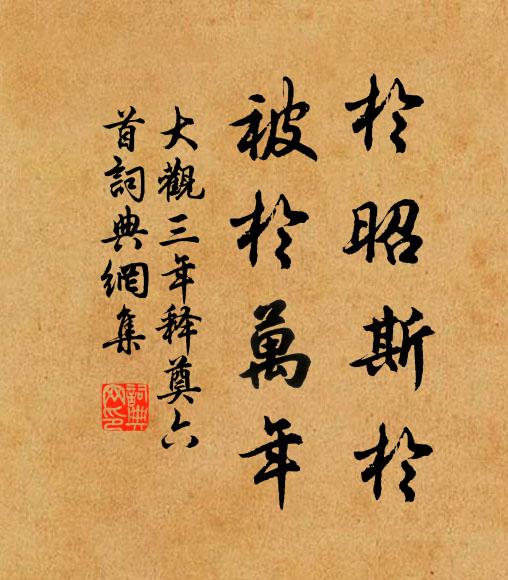 於昭斯於
被於萬年
大觀三年释奠六
首詞典網集
詞典
网印